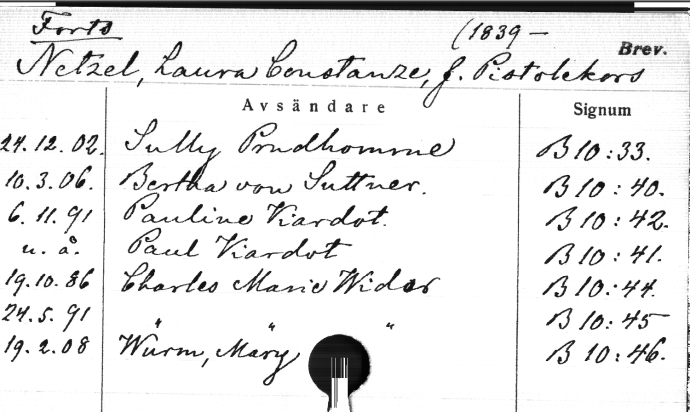 Forts
(1839 –
Brev.
Netzel, Laura Constanze, f. Pistolekors
Avsändare Signum
24.12.02. Sully Prudhomme B 10:33.
10.3.06. Bertha von Suttner. B 10:40.
6.11.91 Pauline Viardot. B 10:42.
u. å. Paul Viardot B 10:41.
19.10.86 Charles Marie Widor B 10:44.
24.5.91 " " " B 10:45
19.2.08 Wurm, Mary B 10:46.